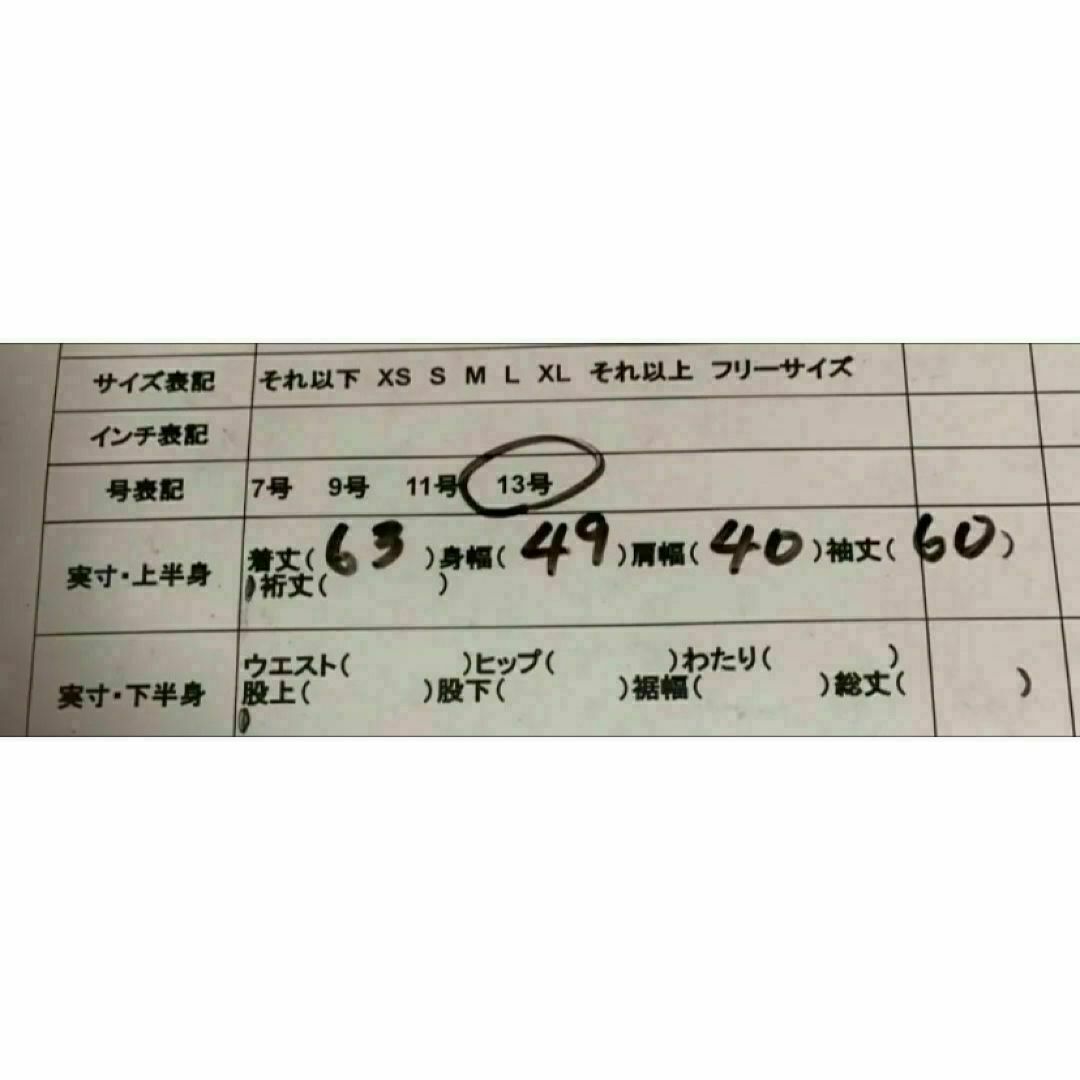 サイズ表記 それ以下 XS S M L XL それ以上 フリーサイズ
インチ表記
号表記 7号 9号 11号 13号
実寸・上半身 着丈(63)身幅(49)肩幅(40)袖丈(60)
)裄丈( )
実寸・下半身 ウエスト( )ヒップ( )わたり( )
股上( )股下( )裾幅( )総丈( )
)